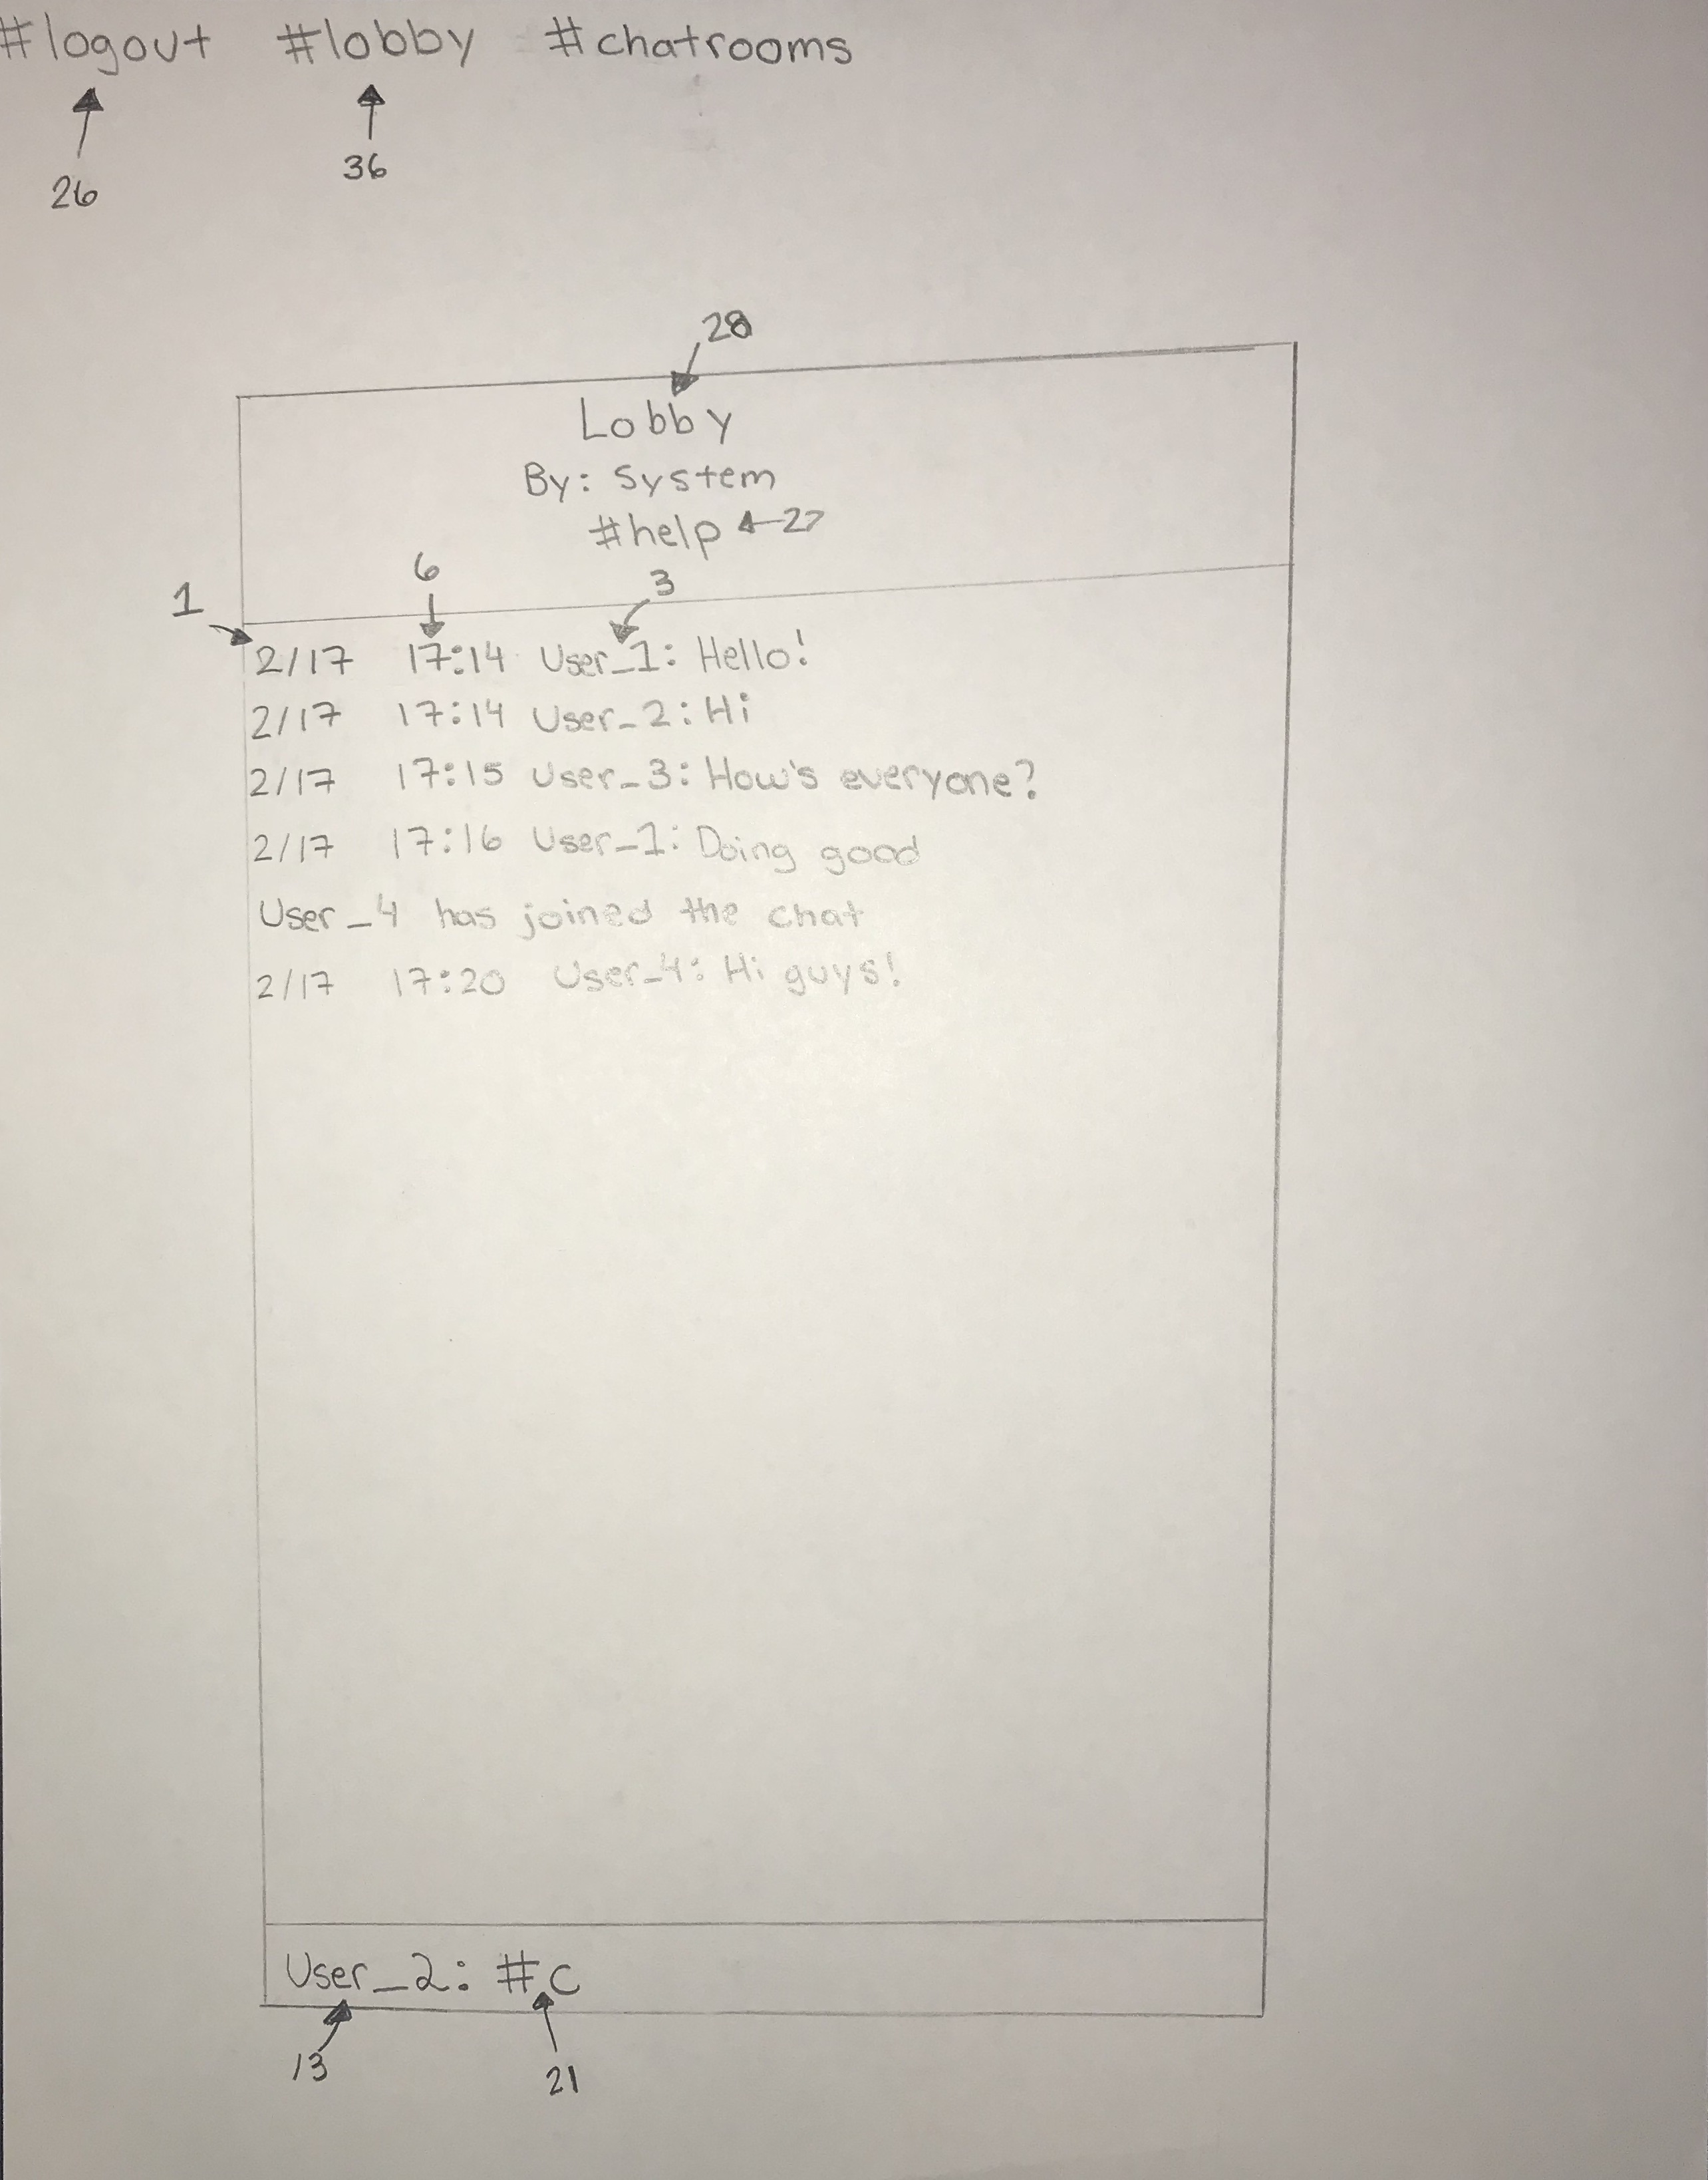 #logout #lobby #chatrooms
36
26
28
Lobby
By: System
#help 27
6
3
1
2/17 17:14 User_1: Hello!
2/17 17:14 User_2: Hi
2/17 17:15 User_3: How's everyone?
2/17 17:16 User_1: Doing good
User_4 has joined the chat
2/17 17:20 User_4: Hi guys!
User_2: #c
13
21